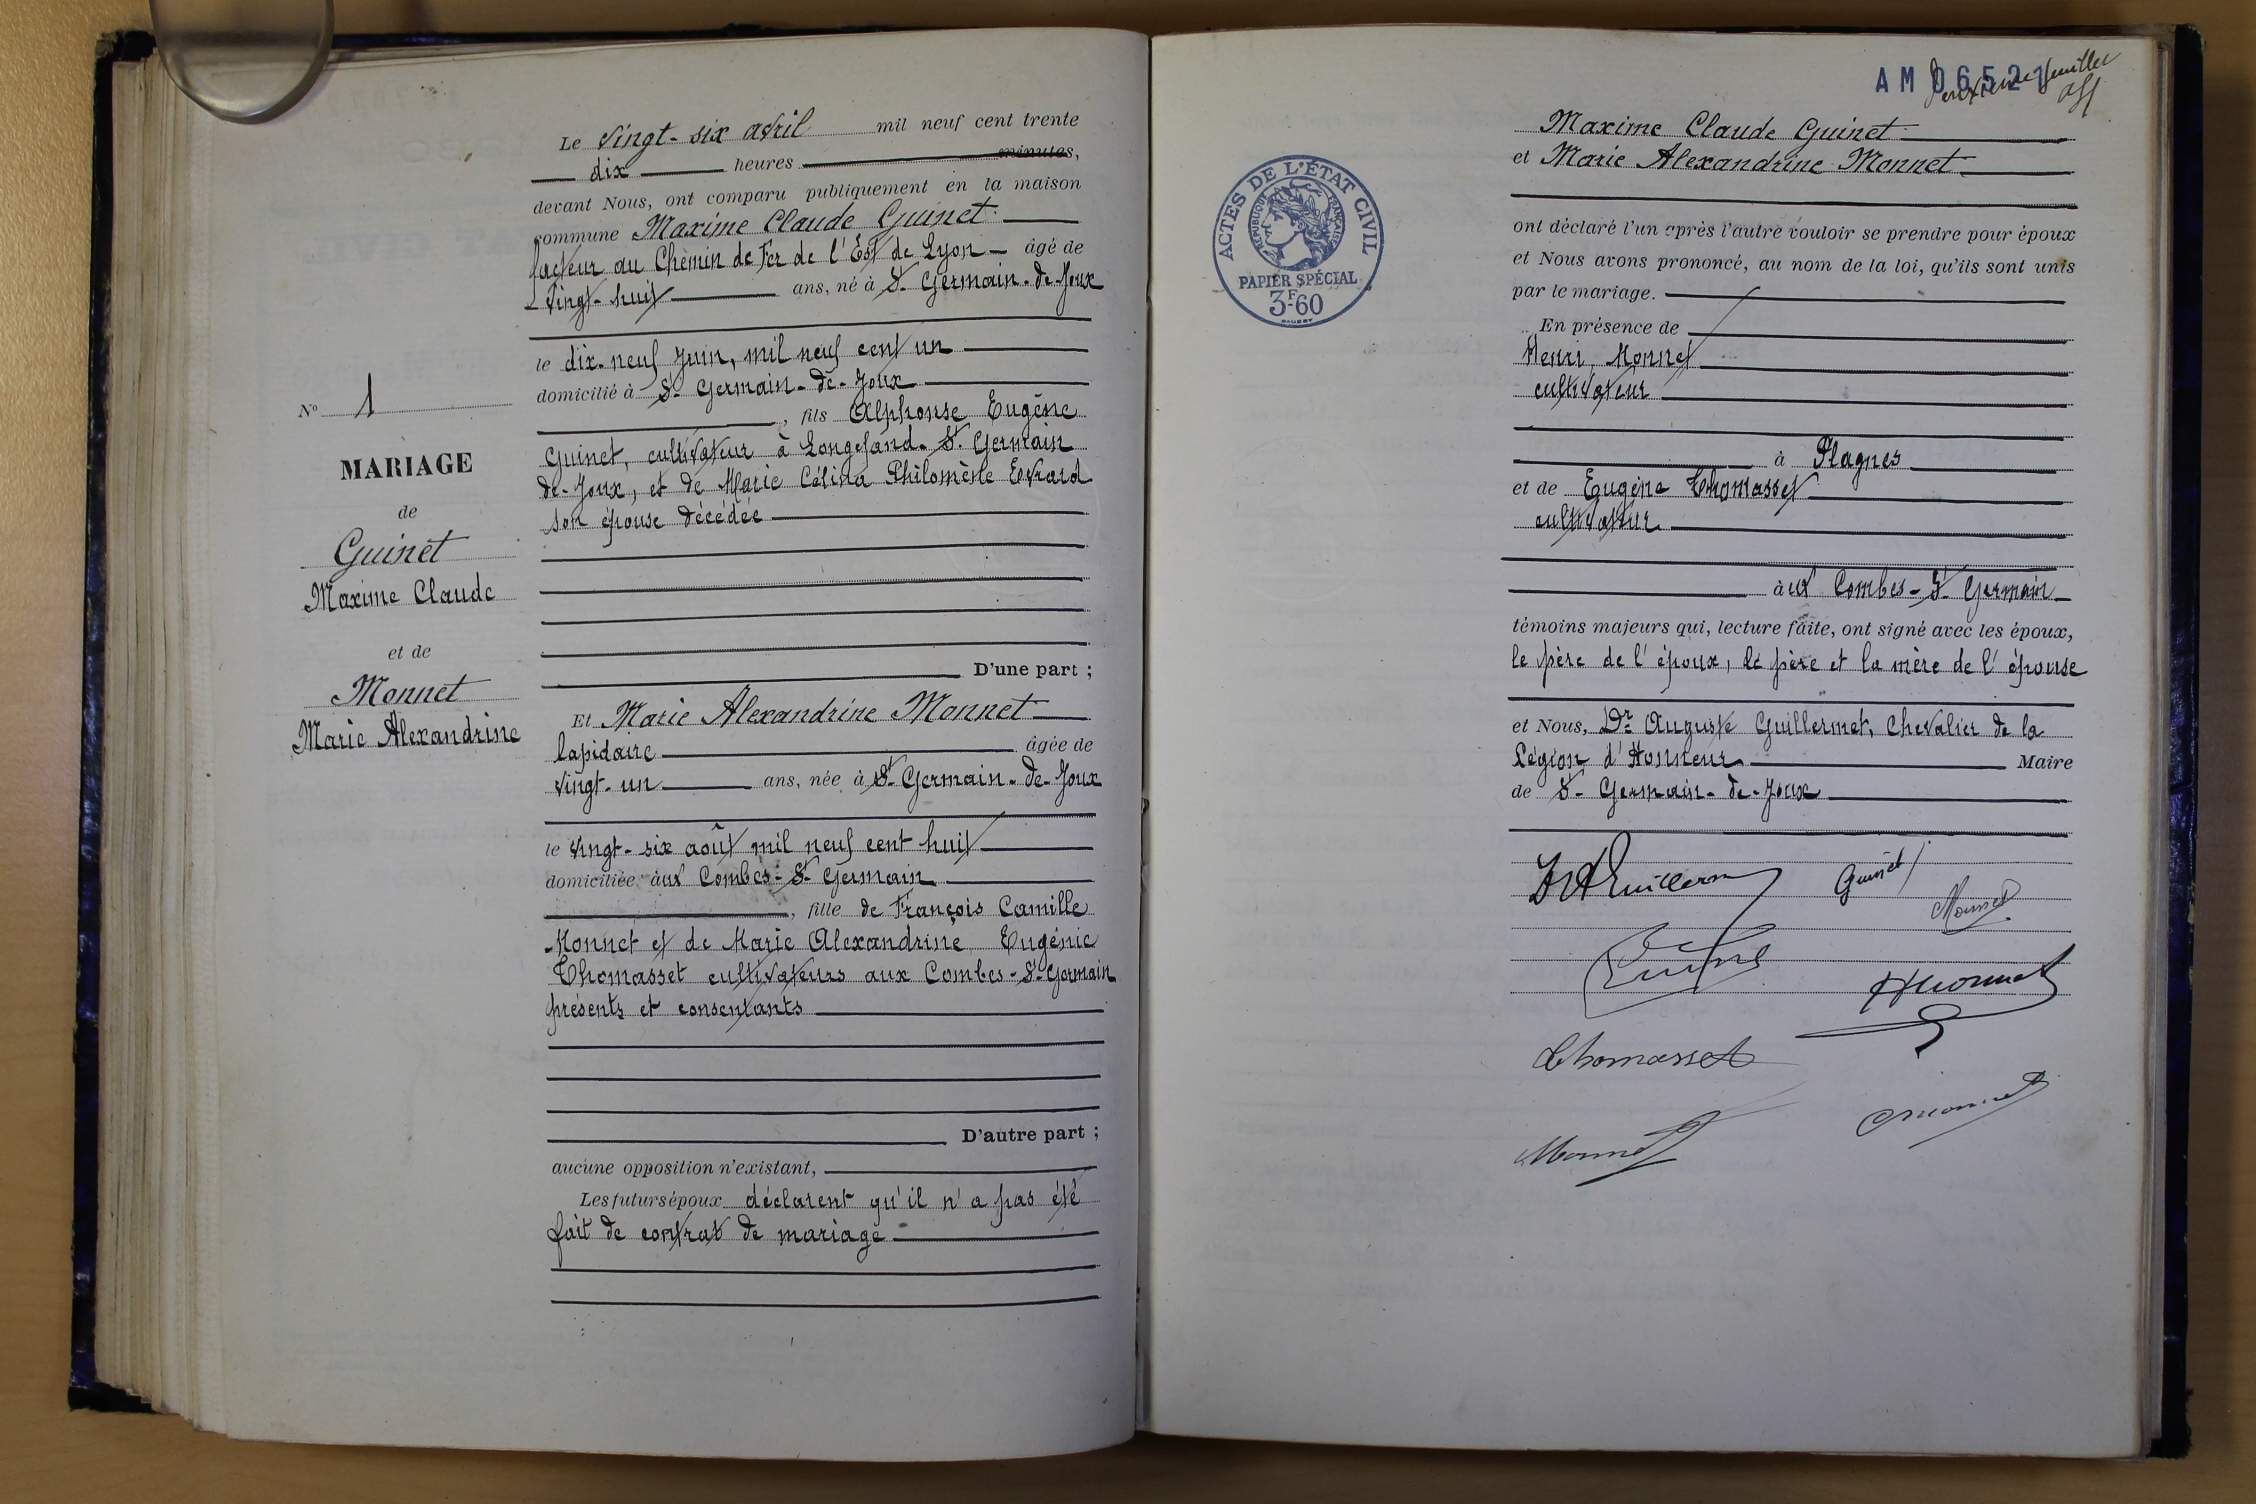 Le vingt-six avril mil neuf cent trente
dix heures minutes,
devant Nous, ont comparu publiquement en la maison
commune Maxime Claude Guinet
facteur au Chemin de Fer de l'Est de Lyon âgé de
vingt-huit ans, né à St Germain-de-Joux
le dix-neuf Juin, mil neuf cent un
domicilié à St Germain-de-Joux
, fils Alphonse Eugène
Guinet, cultivateur à Longefand-St Germain
de-Joux, et de Marie Célina Philomène Evrard
son épouse décédée
D'une part ;
Et Marie Alexandrine Monnet
lapidaire âgée de
vingt-un ans, née à St Germain-de-Joux
le vingt-six août mil neuf cent huit
domiciliée aux Combes-St Germain
, fille de François Camille
Monnet et de Marie Alexandrine Eugénie
Thomasset cultivateurs aux Combes-St Germain
présents et consentants
D'autre part ;
aucune opposition n'existant,
Les futurs époux déclarent qu'il n'a pas été
fait de contrat de mariage
No 1
MARIAGE
de
Guinet
Maxime Claude
et de
Monnet
Marie Alexandrine
AM 06521
feuillet
Maxime Claude Guinet
et Marie Alexandrine Monnet
ont déclaré l'un après l'autre vouloir se prendre pour époux
et Nous avons prononcé, au nom de la loi, qu'ils sont unis
par le mariage.
En présence de
Henri Monnet
cultivateur
à Plagnes
et de Eugène Thomasset
cultivateur
aux Combes-St Germain
témoins majeurs qui, lecture faite, ont signé avec les époux,
le père de l'époux, le père et la mère de l'épouse
et Nous, Dr Auguste Guillermet, Chevalier de la
Légion d'Honneur Maire
de St Germain-de-Joux
ACTES DE L'ÉTAT CIVIL
RÉPUBLIQUE FRANÇAISE
PAPIER SPÉCIAL
3F60
Guinet
Monnet
HMonnet
Thomasset
Monnet